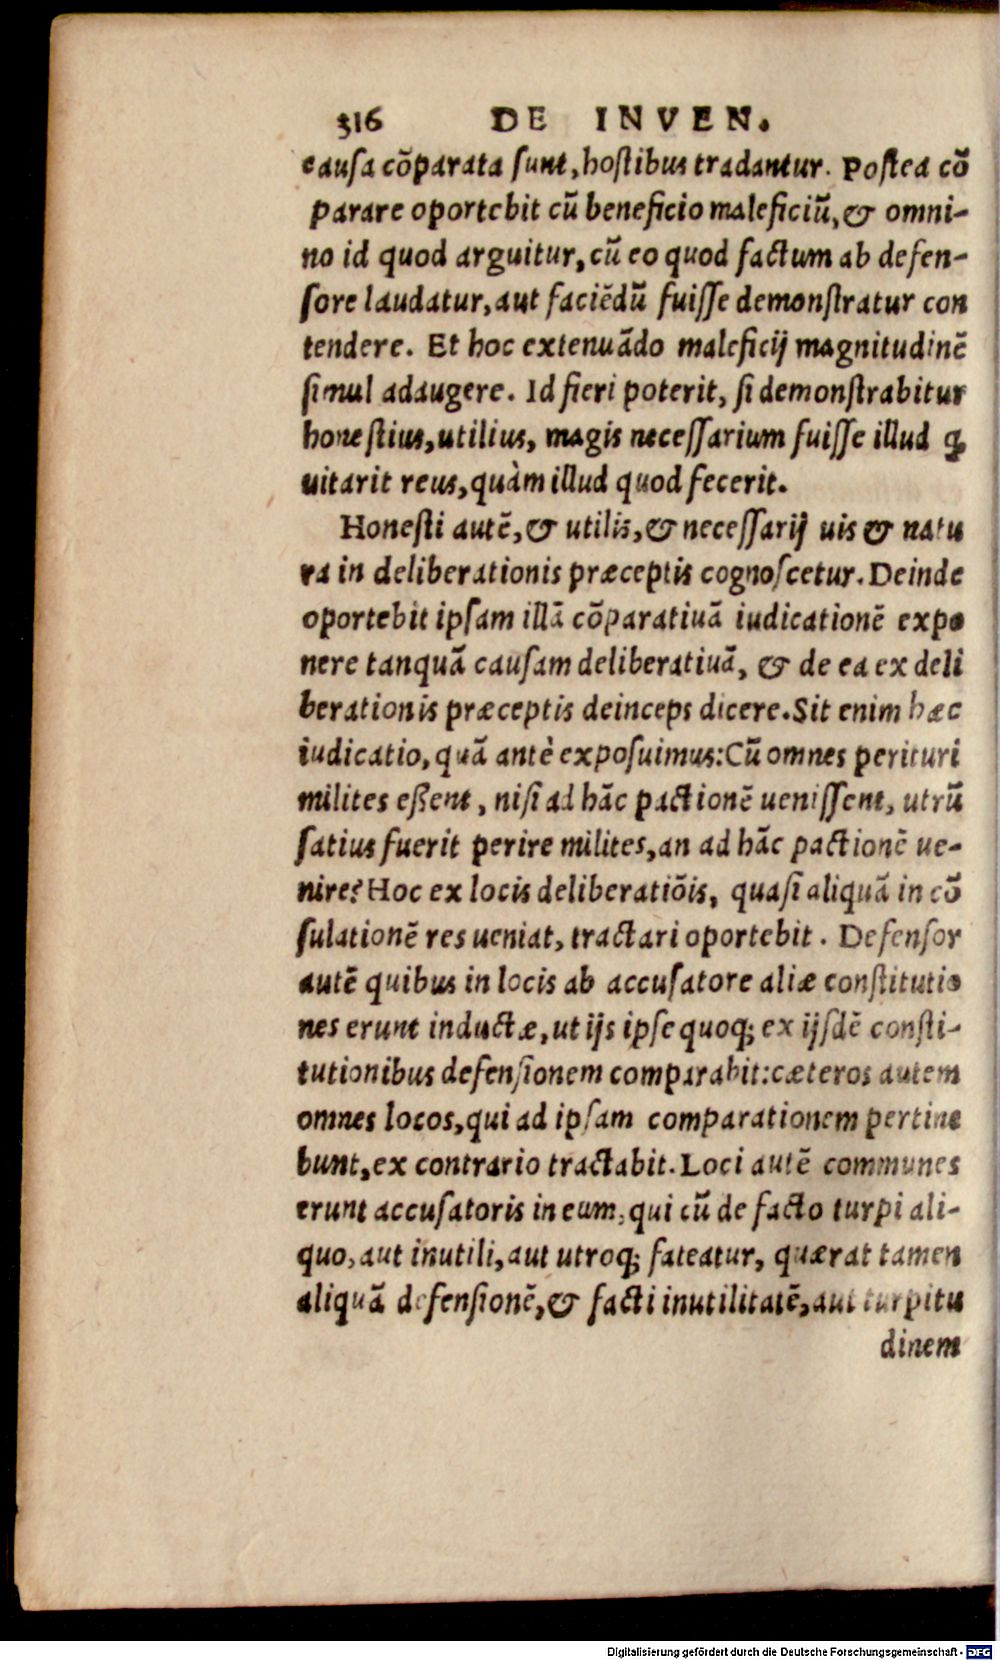 316 DE INVEN.
causa cõparata sunt, hostibus tradantur. Postea cõ
parare oportebit cũ beneficio maleficiũ, & omni-
no id quod arguitur, cũ eo quod factum ab defen-
sore laudatur, aut faciẽdũ fuisse demonstratur con
tendere. Et hoc extenuãdo maleficij magnitudinẽ
simul adaugere. Id fieri poterit, si demonstrabitur
honestius, utilius, magis necessarium fuisse illud ꝙ
uitarit reus, quàm illud quod fecerit.
Honesti autẽ, & utilis, & necessarij uis & natu
ra in deliberationis præceptis cognoscetur. Deinde
oportebit ipsam illã cõparatiuã iudicationẽ expo
nere tanquã causam deliberatiuã, & de ea ex deli
berationis præceptis deinceps dicere. Sit enim hæc
iudicatio, quã antè exposuimus: Cũ omnes perituri
milites eßent, nisi ad hãc pactionẽ uenissent, utrũ
satius fuerit perire milites, an ad hãc pactionẽ ue-
nire? Hoc ex locis deliberatiõis, quasi aliquã in cõ
sulationẽ res ueniat, tractari oportebit. Defensor
autẽ quibus in locis ab accusatore aliæ constitutio
nes erunt inductæ, ut ijs ipse quoq; ex ijsdẽ consti-
tutionibus defensionem comparabit: cæteros autem
omnes locos, qui ad ipsam comparationem pertine
bunt, ex contrario tractabit. Loci autẽ communes
erunt accusatoris in eum, qui cũ de facto turpi ali-
quo, aut inutili, aut utroq; fateatur, quærat tamen
aliquã defensionẽ, & facti inutilitatẽ, aut turpitu
dinem
Digitalisierung gefördert durch die Deutsche Forschungsgemeinschaft - DFG